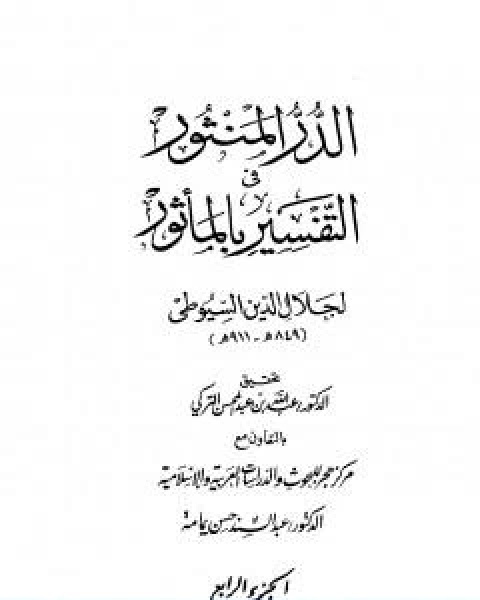 الدُّرُّ المَنْثُور
في
التَّفْسِير بِالمَأْثُور
لجلال الدين السيوطي
(٨٤٩هـ - ٩١١هـ)
تحقيق
الدكتور/عبدالله بن عبدالمحسن التركي
بالتعاون مع
مركز هجر للبحوث والدراسات العربية والإسلامية
الدكتور/عبدالسند حسن يمامة
الجزء الرابع